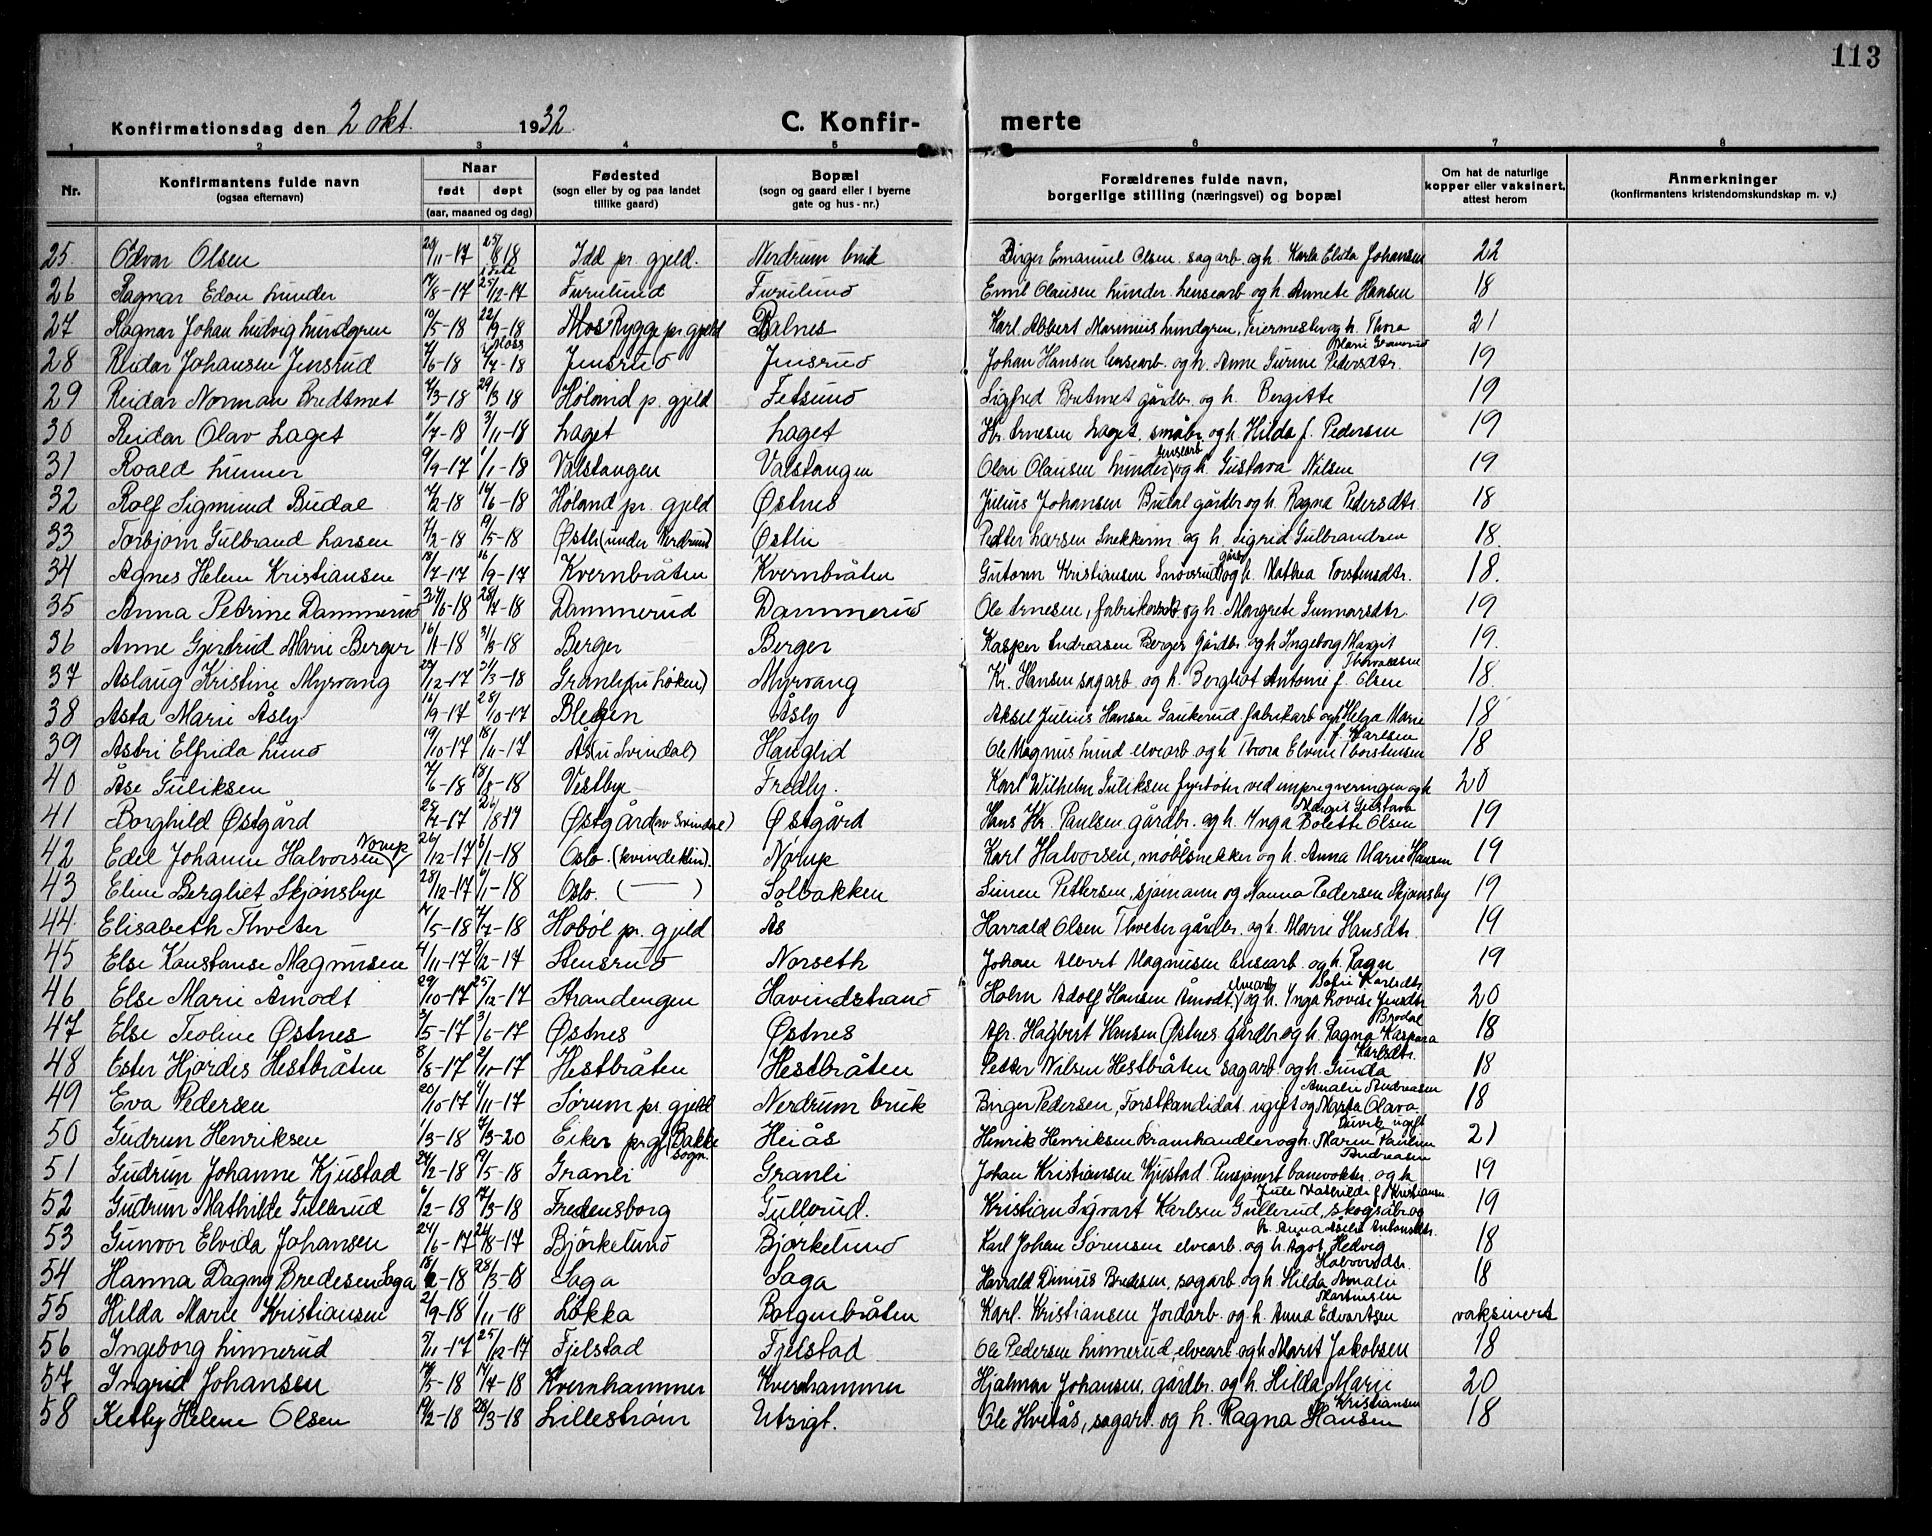 113
Konfirmationsdag den 2 okt. 1932. C. Konfirmerte
1 2 3 4 5 6 7 8
Nr. Konfirmantens fulde navn (ogsaa efternavn) Naar født døpt (aar, maaned og dag) Fødested (sogn eller by og paa landet tillike gaard) Bopæl (sogn og gaard eller i byerne gate og hus-nr.) Forældrenes fulde navn, borgerlige stilling (næringsvei) og bopæl Om hat de naturlige kopper eller vaksinert, attest herom Anmerkninger (konfirmantens kristendomskundskap m. v.)
25. Odvar Olsen 29/11-17 25/8 18 Idd pr. gjeld. Nerdrum bruk Birger Emanuel Olsen sagarb. og h. Karla Elida Johansen 22
26 Ragnar Edon Lunder 14/8-17 25/12-17 Furulund Furulund Emil Olausen Lunder lensearb og h. Annete Hansen 18
27 Ragnar Johan Ludvig Lundgren 10/5-18 22/9-18 i Moss Mos Rygge pr gjeld Balnes Karl Albert Marinius Lundgren, og h. Thora Marie 21
28 Reidar Johansen Jensrud /6-18 /7-18 Jensrud Jensrud Johan Hansen lensearb. og h. Anne Gurine Pedersdtr. 19
29 Reidar Norman Bredtmet /3-18 29/3 18 Høland p. gjeld Fetsund Sigfred Bretmet gårdbr. og h. Bergitte 19
30 Reidar Olav Laget /7-18 3/11-18 Laget Laget Kr. Arnesen Laget. småbr. og h. Hilda f. Pedersen 19
31 Roald Lunner 9/9-17 1/1-18 Valstangen Valstangen Olav Olausen Lunder lensearb og h. Gustava Nilsen 19
32 Rolf Sigmund Budal /2-18 16/6-18 Høland pr. gjeld Østnes Julius Johansen Budal gårdbr og h. Ragna Pedersdtr. 18
33 Torbjørn Gulbrand Larsen /2-18 19/5-18 Østli (under Nerdrum) Østli Petter Larsen Snekkerm og h. Sigrid Gulbrandsen 18.
34 Agnes Helene Kristiansen 18/7-17 16/9-17 Kvernbråten Kvernbråten Gutorm Kristiansen Snoverud gårdbr og h. Mathea Torstensdtr. 18.
35 Anna Petrine Dammerud /6-18 28/7-18 Dammerud Dammerud Ole Arnesen, fabrikarb. og h. Margrete Gunnarsdtr. 19
36 Anne Gjertrud Marie Berger 16/1-18 31/3-18 Berger Berger Kasper Andreasen Berger Gårdbr. og h Ingeborg Margit 19.
37 Aslaug Kristine Myrvang 29/12-17 31/3-18 Granly (u Løken) Myrvang Kr. Hansen sagarb og h. Bergliot Antonie f. Olsen 18
38 Asta Marie Åsly 16/9-17 28/10-17 Blegen Åsly Aksel Julius Hansen Gaukerud fabrikarb og h Helga Marie f. Karlsen 18
39 Astri Elfrida Lund 19/10-17 18/6-17 Ås (u Svindal) Hanglid Ole Magnus Lund elvearb og h Thora Elvine Thorstensen 18
40 Åse Guliksen /6-18 18/8-18 Vestbye Fredly. Karl Wilhelm Guliksen fyrbøter ved impregneringen og h Margit Gustava 20
41 Borghild Østgård 25/4-17 26/8 17 Østgård (av Svindal) Østgård Hans Kr. Paulsen gårdbr. og h. Inga Bolette Olsen 19
42 Edel Johanne Halvorsen Norup 26/12-17 6/1-18 Oslo (kvindeklin). Norup Karl Halvorsen, møblsnekker og h. Anna Marie Hansen 19
43 Eline Bergliet Skjønsbye 28/12-17 6/1-18 Oslo. ( — ) Solbakken Simen Pettersen, sjømann og Nanna Pedersen Skjønsby 19
44. Elisabeth Thveter 14/5-18 7/7-18 Hobøl pr. gjeld Ås Harrald Olsen Thveter gårdbr. og h. Marie Hansdtr. 19
45 Else Konstanse Magnusen 4/11-17 9/12-17 Stensrud Norseth Johan Alvert Magnusen lensearb. og h. Ragn Sofie Karlsdtr. 19
46 Else Marie Åmodt 29/10-17 25/12-17 Strandengen Havindstrand Holm Adolf Hansen Åmodt, elvearb. og h. Ynga Lovise Jensdtr 20
47 Else Teoline Østnes 3/5-17 3/6-17 Østnes Østnes Hagbert Hansen Østnes gårdbr og h. Ragna Kaspara Brødal 18
48 Ester Hjørdis Hestbråten 8/8-17 21/10-17 Hestbråten Hestbråten Petter Nilsen Hestbråten sagarb og h. Gunda Karlsdtr. 18
49 Eva Pedersen 20/10-17 4/11-17 Sørum pr. gjeld Nerdrum bruk Birger Pedersen, Forstkandidat ugift og Marta Olava Amalie Andreasen 18
50 Gudrun Henriksen /3-18 7/3-20 Eiker pr gj (Bakke sogn. Heiås Henrik Henriksen kramhandler og h. Maren Pauline Andreasen 21
51 Gudrun Johanne Kjustad 24/2-18 19/5-18 Granli Granli Johan Kristiansen Kjustad Pensjonert banevokter. og h Jule Mathilde f. Kristiansen 19
52 Gudrun Mathilde Gullerud 6/2-18 17/3-18 Fredensborg Gullerud. Kristian Sigvart Karlsen Gullerud, skogsarb og h. Anna Antonsdtr. 19
53 Gunvor Elvida Johansen 24/6-17 24/8-17 Bjørkelund Bjørkelund Karl Johan Sørensen elvearb. og h. Agot Hedvig Halvorsdtr. 18
54 Hanna Dagny Bredesen Saga 18/2-18 28/3-18 Saga Saga Harrald Dinius Bredesen, sagarb og h. Hilda Amalie Martinsen 18
55 Hilda Marie Kristiansen /9-18 1/11-18 Løkka Borgenbråten Karl. Kristiansen Jordarb. og h. Anna Edvartsen vaksinert
56 Ingeborg Linnerud 5/11-17 25/12-17 Fjelstad Fjelstad Ole Pedersen Linnerud, elvearb og h Marit Jakobsen 18
57 Ingrid Johansen /3-18 14/4-18 Kvernhammer Kvernhammer Hjalmar Johansen, gårdbr. og h. Hilda Marie Kristiansen 20
58 Ketty Helene Olsen /2-18 28/3-18 Lillestrøm Utsigt. Ole Hvetås, sagarb. og h. Ragna Hansen 18